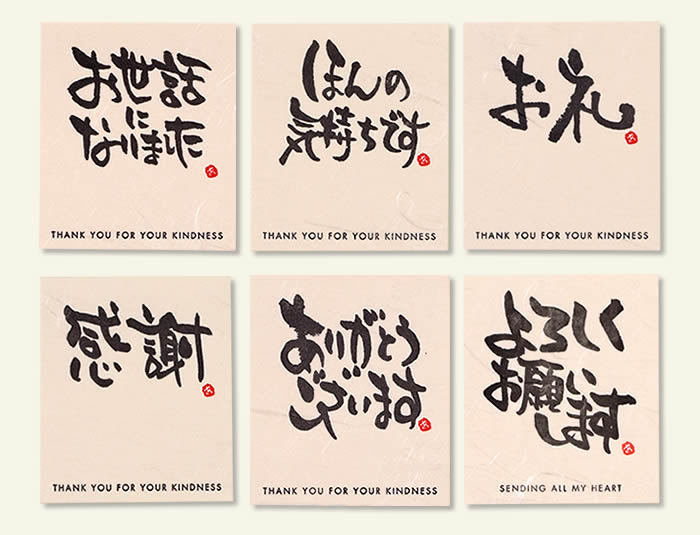 お世話
に
なりました
THANK YOU FOR YOUR KINDNESS
ほんの
気持ちです
THANK YOU FOR YOUR KINDNESS
お礼
THANK YOU FOR YOUR KINDNESS
感謝
THANK YOU FOR YOUR KINDNESS
ありがとう
ございます
THANK YOU FOR YOUR KINDNESS
よろしく
お願い
します
SENDING ALL MY HEART